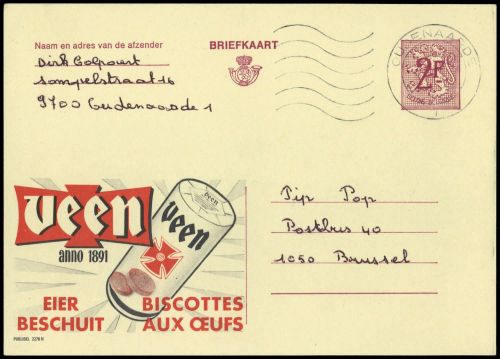 Naam en adres van de afzender
Dirk Colpaert
Sompelstraat 16
9700 Oudenaarde 1
BRIEFKAART
OUDENAARDE
2F
Veen
anno 1891
veen
veen
EIER
BESCHUIT
BISCOTTES
AUX ŒUFS
PUBLIBEL 2276 N
Pip Pop
Postbus 40
1050 Brussel